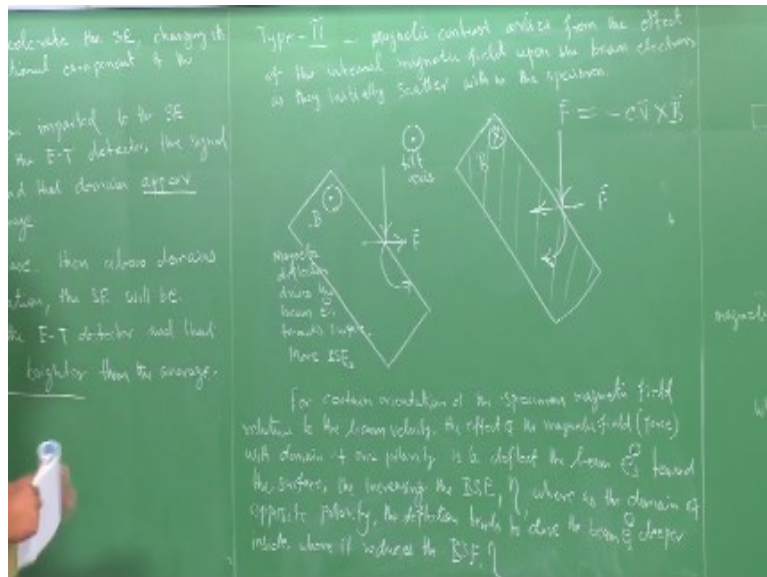 celerate the SE, changing its
tional component of the
imparted to the SE
the E-T detector, the signal
nd that domain appear
age
ase. then above domains
ation, the SE will be
the E-T detector and thus
brighter than the average.
Type-II - magnetic contrast arises from the effect
of the internal magnetic field upon the beam electrons
as they initially scatter within the specimen.
F = -e V X B
tilt
axis
B
F
magnetic
deflection
drives the
beam e-
towards surface.
More BSEs
B
F
For certain orientation of the specimen magnetic field
relative to the beam velocity, the effect of the magnetic field (force)
with domain of one polarity is to deflect the beam e toward
the surface, the increasing the BSE, η, where as the domain of
opposite polarity, the deflection tends to drive the beam e deeper
inside where it reduces the BSE, η
magnetic